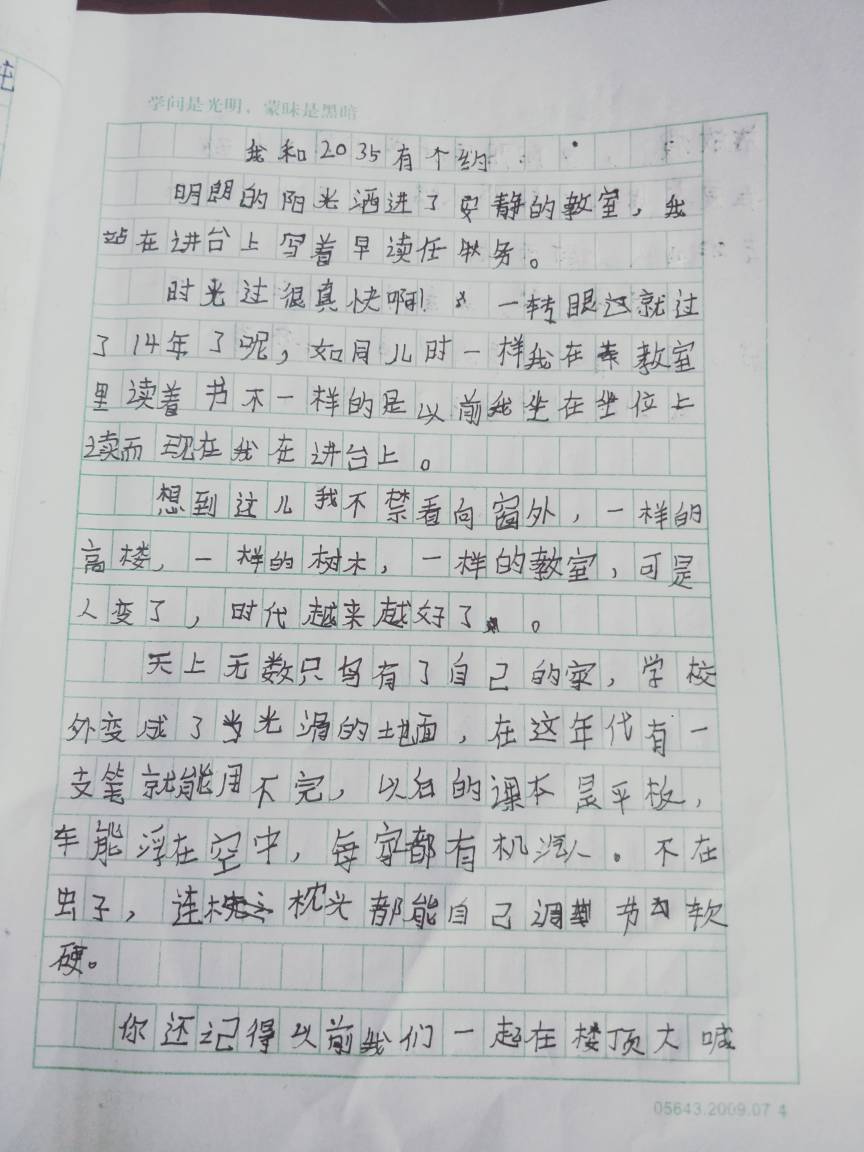 学问是光明，蒙昧是黑暗
我和2035有个约
明朗的阳光洒进了安静的教室，我
站在讲台上写着早读任务。
时光过很真快啊！一转眼这就过
了14年了呢，如同儿时一样我在教室
里读着书不一样的是以前我坐在坐位上
读而现在我在讲台上。
想到这儿我不禁看向窗外，一样的
高楼，一样的树木，一样的教室，可是
人变了，时代越来越好了。
天上无数只鸟有了自己的家，学校
外变成了光滑的地面，在这年代有一
支笔就能用不完，以后的课本是平板，
车能浮在空中，每家都有机器人。不在
虫子，连枕头都能自己调节软
硬。
你还记得以前我们一起在楼顶大喊
05643.2009.07 4